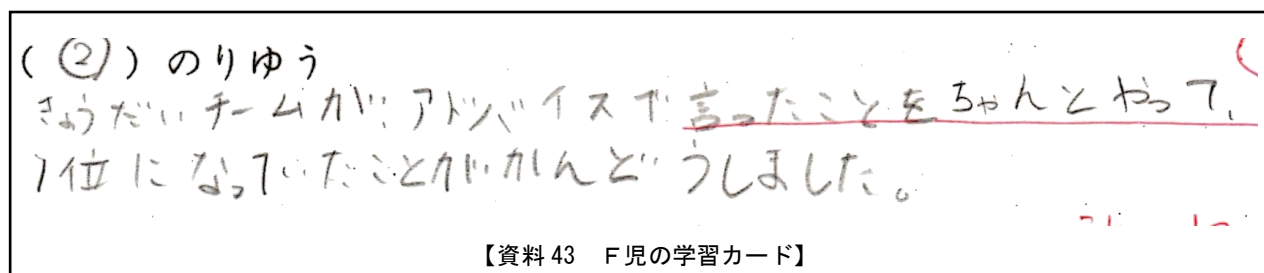 (②)のりゆう
きょうだいチームがアドバイスで言ったことをちゃんとやって、
1位になっていたことがかんどうしました。
【資料43 F児の学習カード】